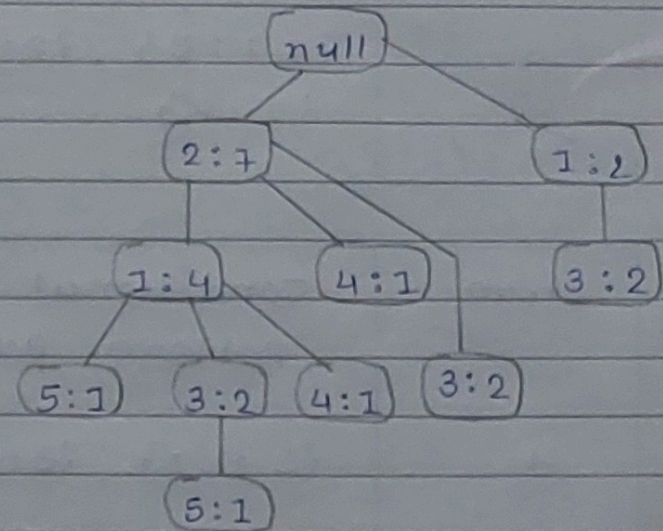 null
2:7 1:2
1:4 4:1 3:2
5:1 3:2 4:1 3:2
5:1